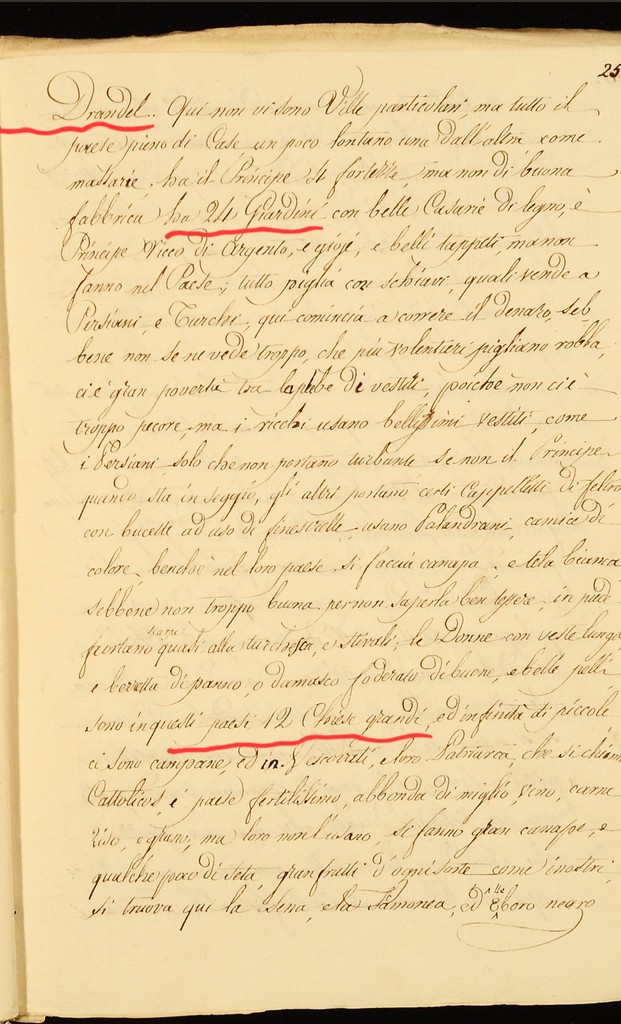 25
Drandel. Qui non vi sono Ville particulari, ma tutto il
paese pieno di Case un poco lontano una dall'altra, come
massarie, ha il Principe 4 fortezze, ma non di buona
fabbrica ha 24 Giardini con belle Casarie di legno, è
Principe Ricco di Argento, e gioje, e belli tappeti, ma non
fanno nel Paese; tutto piglia con schiavi, quali vende a
Persiani, e Turchi, qui comincia a correre il denaro, seb_
bene non se ne vede troppo, che più volentieri pigliano robba,
ci è gran povertà tra la plebe di vestiti, poiche non ci è
troppo pecore, ma i ricchi usano bellissimi vestiti, come
i Persiani, solo che non portano turbante se non il Principe
quando sta in seggio, gli altri portano certi Cappelletti di feltro
con bucette ad uso di finestrelle, usano Palandrani, camice de
colore, benchè nel loro paese si faccia canapa, e tela bianca
sebbene non troppo buona per non saperla ben tessere, in piede
portano quasi alla turchesca, e stivali, le Donne con veste lunga
e berretta di panno, o damasco foderato di buone, e belle pelli
sono in questi paesi 12 Chiese grandi, ed infinità di piccole
ci sono campane, ed in. Vescovati, e loro Patriarca, che si chiam
Cattolicos, è paese fertilissimo, abbonda di miglio, vino, carne
riso, e grano, ma loro non l'usano, si fanno gran canape, e
qualche poco di seta, gran frutti d'ogni sorte come i nostri,
si truova qui la sena, e la scamonea, ed elleboro negro